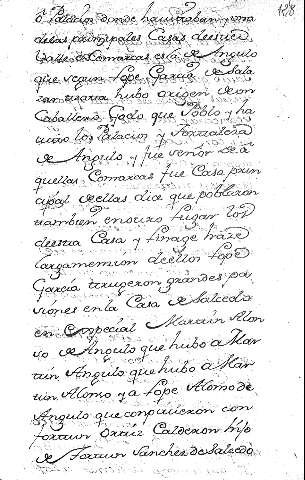 128
o Palacios donde havitaban, una
delas principales Casas de esta
Valles o Comarcas es la de Angulo
que segun Lope Garcia de Sala
zar hubo origen de un
Caballero Godo que Poblo y hi
los Palacios y Fortaleza
de Angulo y fue señor de a
quellas Comarcas fue Casa prin
cipal de ellas dice que poblaron
tambien en otro Lugar los
de esta Casa y Linage
largamente de ellos Lope
Garcia tugeron grandes pa
siones en la Casa de Salcedo
en especial Martin Alon
so de Angulo que hubo a Mar
tin Angulo que hubo a Mar
tin Alonso y a Lope Alonso de
Angulo que conpitieron con
fortun Ortiz Calderon hijo
de Fortun Sanchez de Salcedo